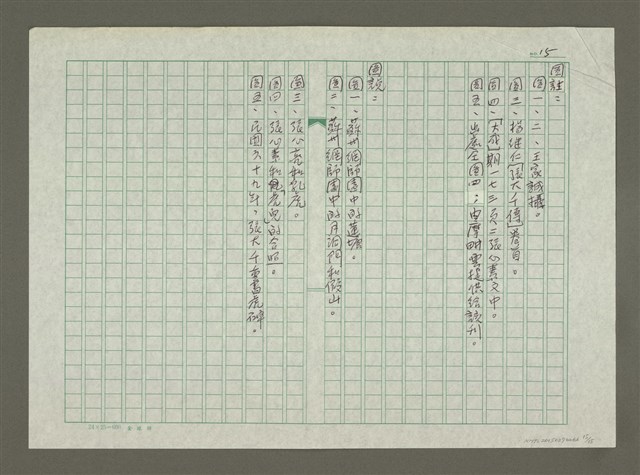 NO. 15
圖註：
圖一、二、王家誠攝。
圖三、楊繼仁〔張大千傳〕卷首。
圖四、〔大成〕期一七三頁二張心素文中。
圖五、出處仝圖四；由摩耶雲提供給該刊。
圖說：
圖一、蘇州網師園中的蓮塘。
圖二、蘇州網師園中的月洞門和假山。
圖三、張心亮和乳虎。
圖四、張心素和虎兒的合照。
圖五、民國六十九年，張大千重書虎碑。